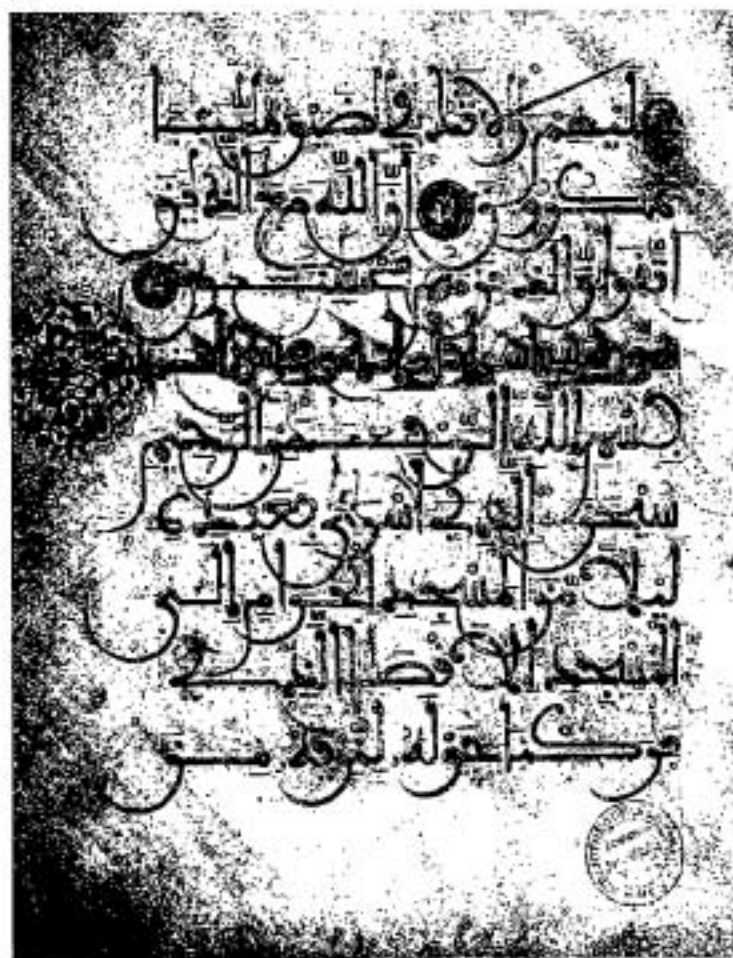 عليهم ولا تك في ضيق مما
يمكرون ان الله مع الذين
اتقوا والذين هم محسنون
بسم الله الرحمن الرحيم
سبحن الذي اسرى بعبده
ليلا من المسجد الحرام الى
المسجد الاقصا الذي
بركنا حوله لنريه من